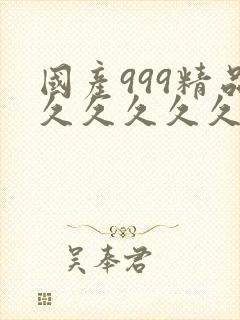 國產999精品
久久久久久
吴奉君